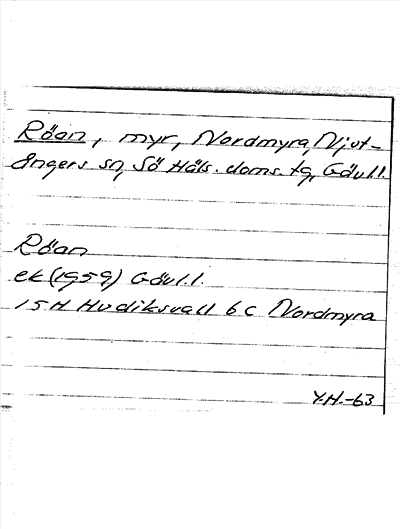 Röan, myr, Nordmyra, Njut-
ångers sn, Sö Häls. doms. tg, Gävl.l.
Röan
ek (1959) Gävl.l.
15H Hudiksvall 6c Nordmyra
Y.H.-63